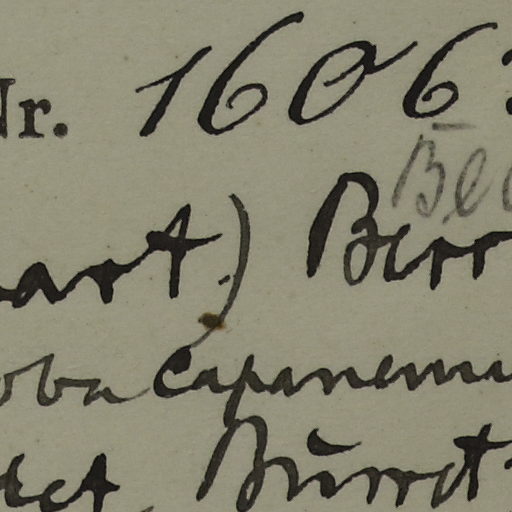 Nr. 1606
Be
art) Burr
oba capanemu
det. Burret